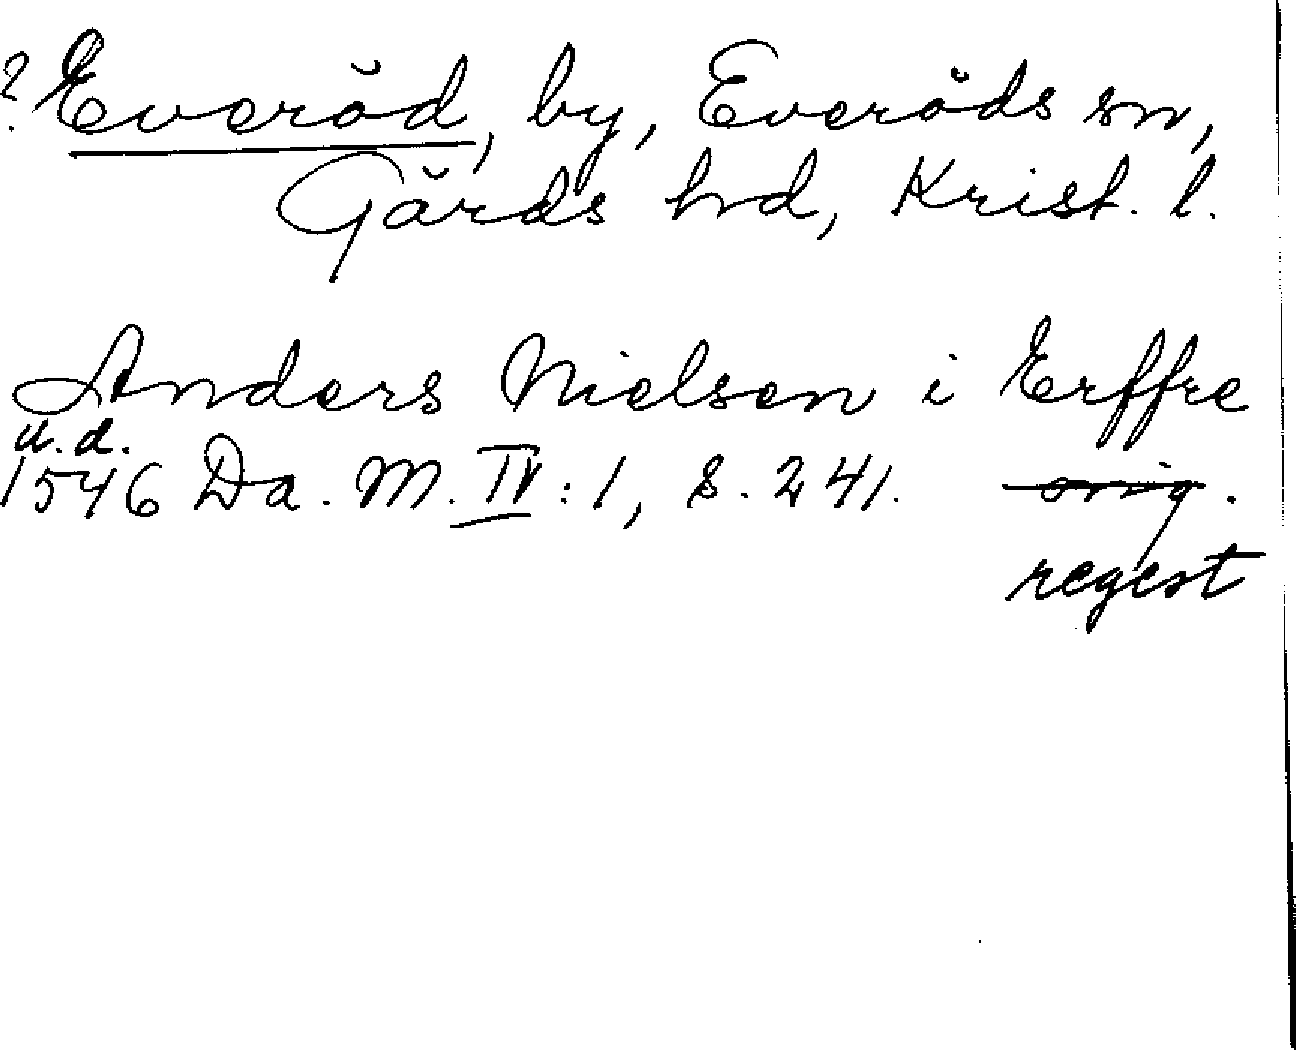 ? Everöd, by, Everöds sn,
Gärds hrd, Krist. l.
Anders Nielsen i Erffre
u.d.
1546 Da. M. IV:1, s. 241. orig.
regest